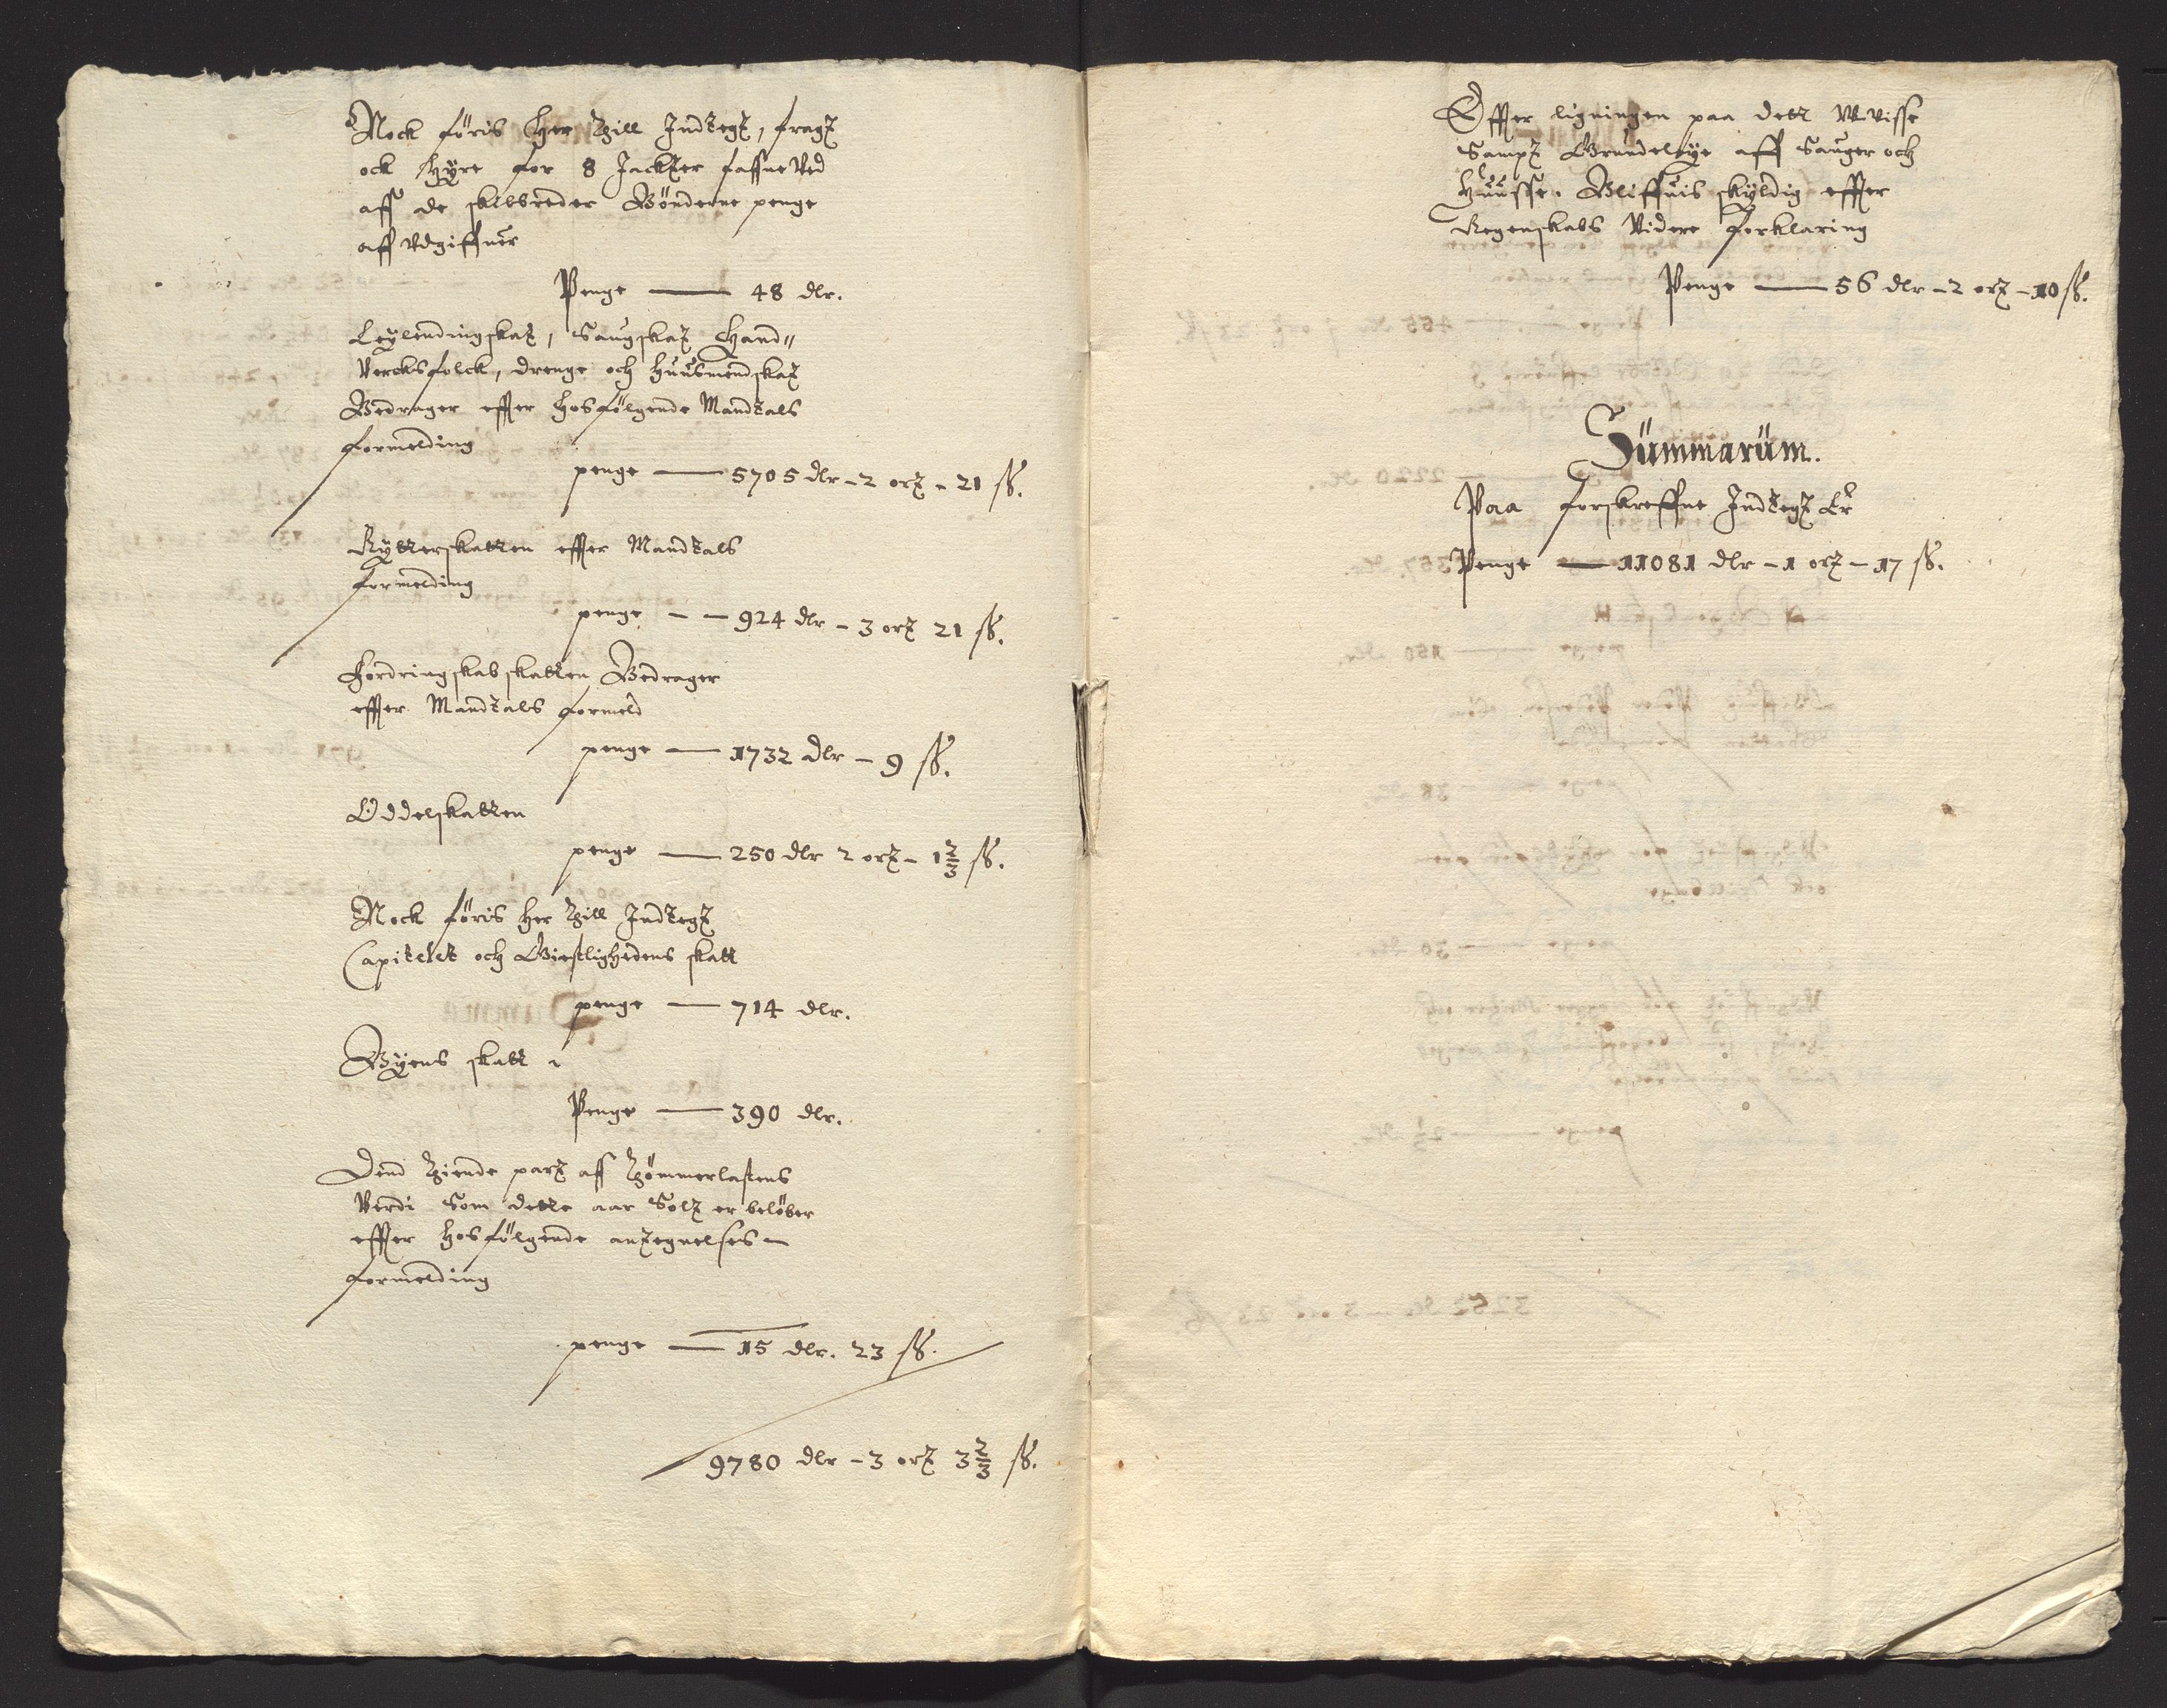 Nock föris her till Indtegt, fragt
ock hyre for 8 Jackter faffne Ved
aff de skibbreder Bönderne penge
aff Udgiffuer
Penge — 48 dlr.
Leylendingskat, Saugskat Hand„
Vercksfolck, drenge och Huusmendskat
Bedrager effter hosfølgende Mandtals
formelding
penge — 5705 dlr – 2 ort – 21 ß.
Rytterskatten effter Mandtals
formelding
penge – – 924 dlr – 3 ort 21 ß.
Fordringskabskatten Bedrager
effter Mandtals formeld
penge — 1732 dlr – 9 ß.
Oddelskatten
penge — 250 dlr 2 ort – 1 2/3 ß.
Nock föris her till Indtegt
Capitelet och Giestlighedens skatt
penge — 714 dlr.
Byens skatt
Penge — 390 dlr.
Dend tiende part aff Tömmerlastens
Verdi Som dette aar Solt er belöber
effter hosfölgende antegnelses
formelding
penge — 15 dlr. 23 ß.
9780 dlr – 3 ort 3 2/3 ß.
Effter ligningen paa dett Wuisse
Sampt Grundeleye aff Sauger och
Huusse. Bliffuis skyldig effter
Regenskabs Videre forklaring
Penge — 56 dlr – 2 ort – 10 ß.
Summarüm.
Paa forskreffne Indtegt Er
Penge — 11081 dlr – 1 ort – 17 ß.